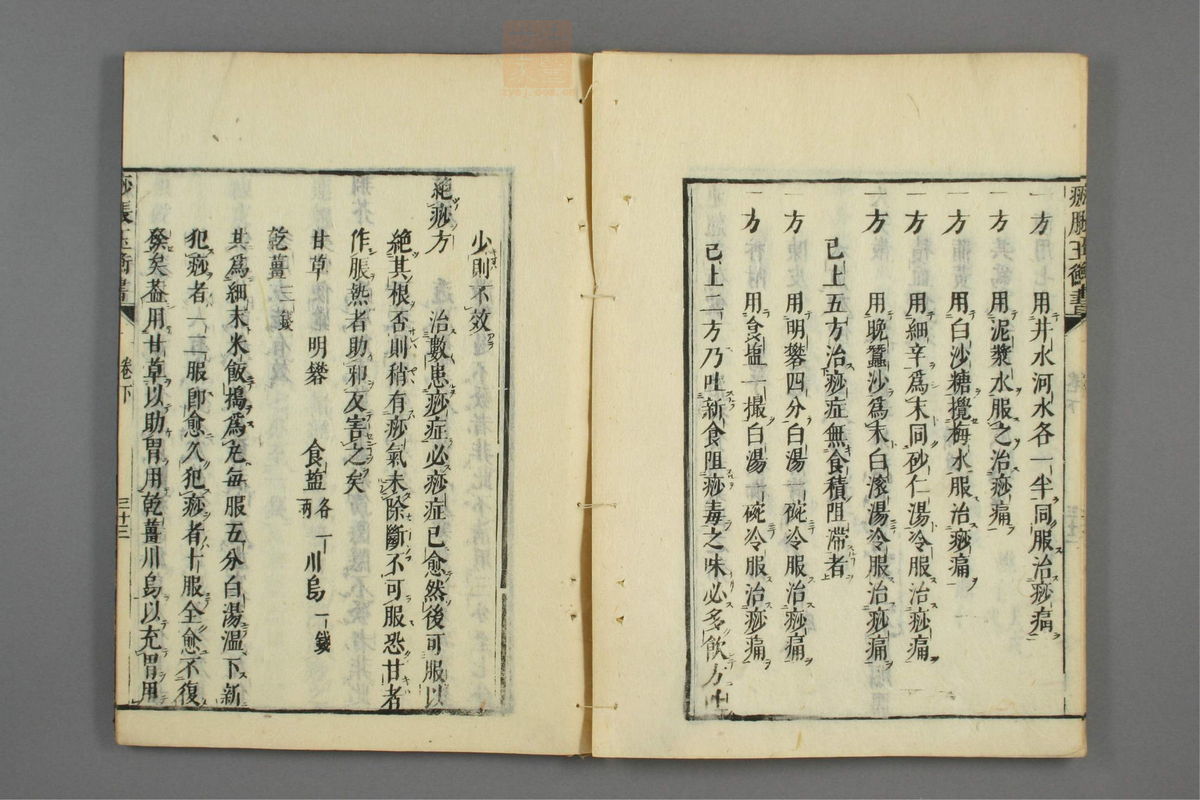 痧脹玉衡書
一方 用井水河水各一半同服治痧痛
一方 用泥漿水服之治痧痛
一方 用白沙糖攪梅水服治痧痛
一方 用細辛爲末同砂仁湯冷服治痧痛
一方 用晚蠶沙爲末白滾湯冷服治痧痛
已上五方治痧症無食積阻滯者
一方 用明礬四分白湯一碗冷服治痧痛
一方 用食塩一撮白湯一碗冷服治痧痛
已上二方乃吐新食阻痧毒之味必多飲方吐
少則不效
絕痧方 治數患痧症必痧症已愈然後可服以
絕其根否則稍有痧氣未除斷不可服恐甘者
作脹熱者助邪反害之矣
甘草 明礬 食塩 各一兩 川烏 一錢
乾薑 三錢
其爲細末米飯搗爲丸每服五分白湯溫下新
犯痧者一二服即愈久犯痧者十服全愈不復
發矣葢用甘草以助胃用乾薑川烏以充胃用
痧脹玉衡書 卷下 三十三